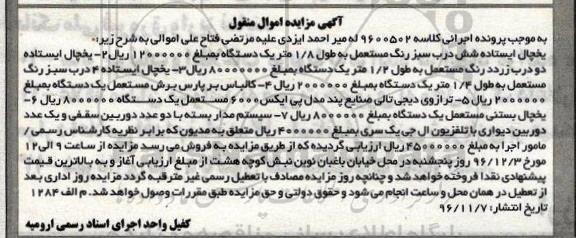 آگهی مزایده اموال منقول
به موجب پرونده اجرائی کلاسه 9600502 له میر احمد ایزدی علیه مرتضی فتاح علی اموالی به شرح زیر:
یخچال ایستاده شش درب سبز رنگ مستعمل به طول 1/8 متر یک دستگاه بمبلغ 12000000 ریال 2- یخچال ایستاده
دو درب زرد رنگ مستعمل به طول 1/2 متر یک دستگاه بمبلغ 8000000 ریال 3- یخچال ایستاده 4 درب سبز رنگ
مستعمل به طول 1/4 متر یک دستگاه بمبلغ 2000000 ریال 4- کالباس بر پارس برش مستعمل یک دستگاه بمبلغ
2000000 ریال 5- ترازوی دیجی تالی صنایع پند مدل پی ایکس 6000 مستعمل یک دستگاه 8000000 ریال 6-
یخچال بستنی مستعمل یک دستگاه بمبلغ 8000000 ریال 7- سیستم مدار بسته با دو عدد دوربین سقفی و یک عدد
دوربین دیواری با تلفزیون ال جی یک سری بمبلغ 4000000 ریال متعلق به مدیون که برابر نظریه کارشناس رسمی /
مامور اجرا به مبلغ 45000000 ریال ارزیابی گردیده که از طریق مزایده به فروش می رسد مزایده از ساعت 9 الی 12
مورخ 96/12/3 روز پنجشنبه در محل خیابان باغبان نوین نبش کوچه هشت از مبلغ ارزیابی آغاز و به بالاترین قیمت
پیشنهادی نقدا فروخته خواهد شد و چنانچه روز مزایده مصادف با تعطیل رسمی غیر مترقبه گردد مزایده روز اداری بعد
از تعطیل در همان محل و ساعت انجام می شود و حقوق دولتی و حق مزایده طبق مقررات وصول خواهد شد. م الف 1284
تاریخ انتشار: 96/11/7
کفیل واحد اجرای اسناد رسمی ارومیه